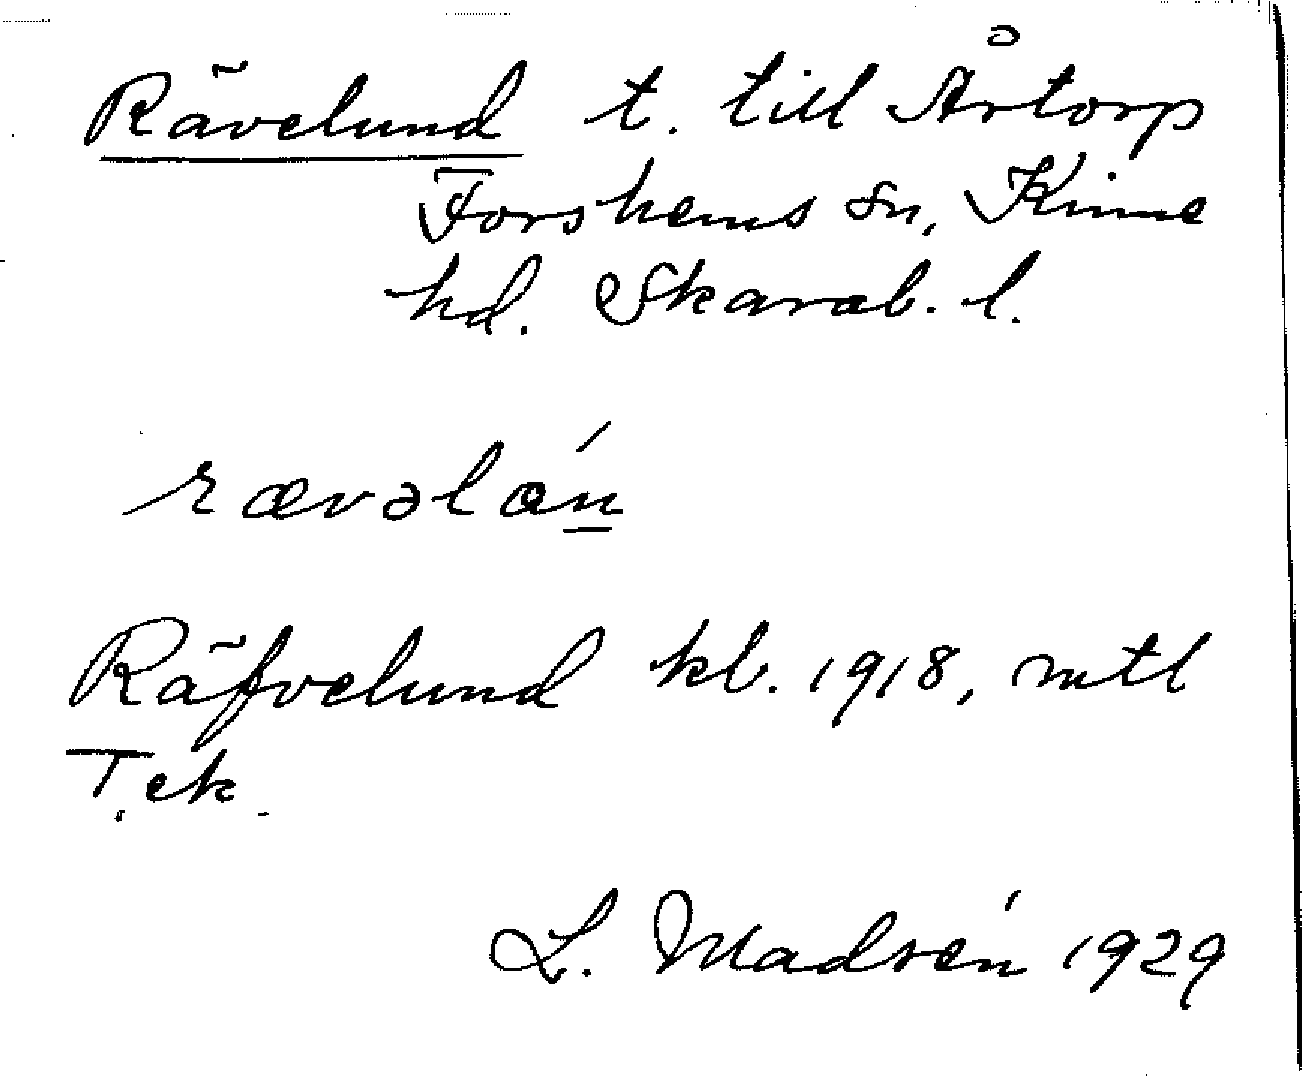 Rävelund t. till Årtorp
Forshems sn, Kinne
hd. Skarab. l.
rævəlán
Räfvelund kb. 1918, mtl
T. ek.
L. Madsén 1929